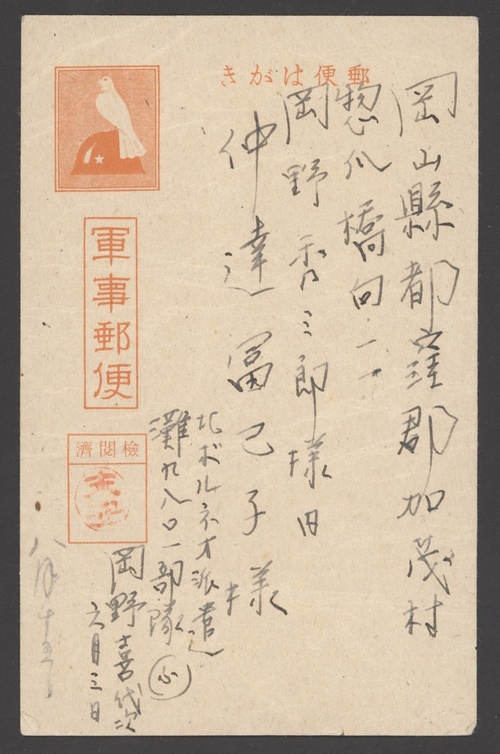 郵便はがき
岡山縣都窪郡加茂村
惣爪橋向二十
岡野秀三郎様内
仲達冨己子様
軍事郵便
檢閲濟
北ボルネオ派遣
灘九八〇一部隊
岡野喜代次
六月三日